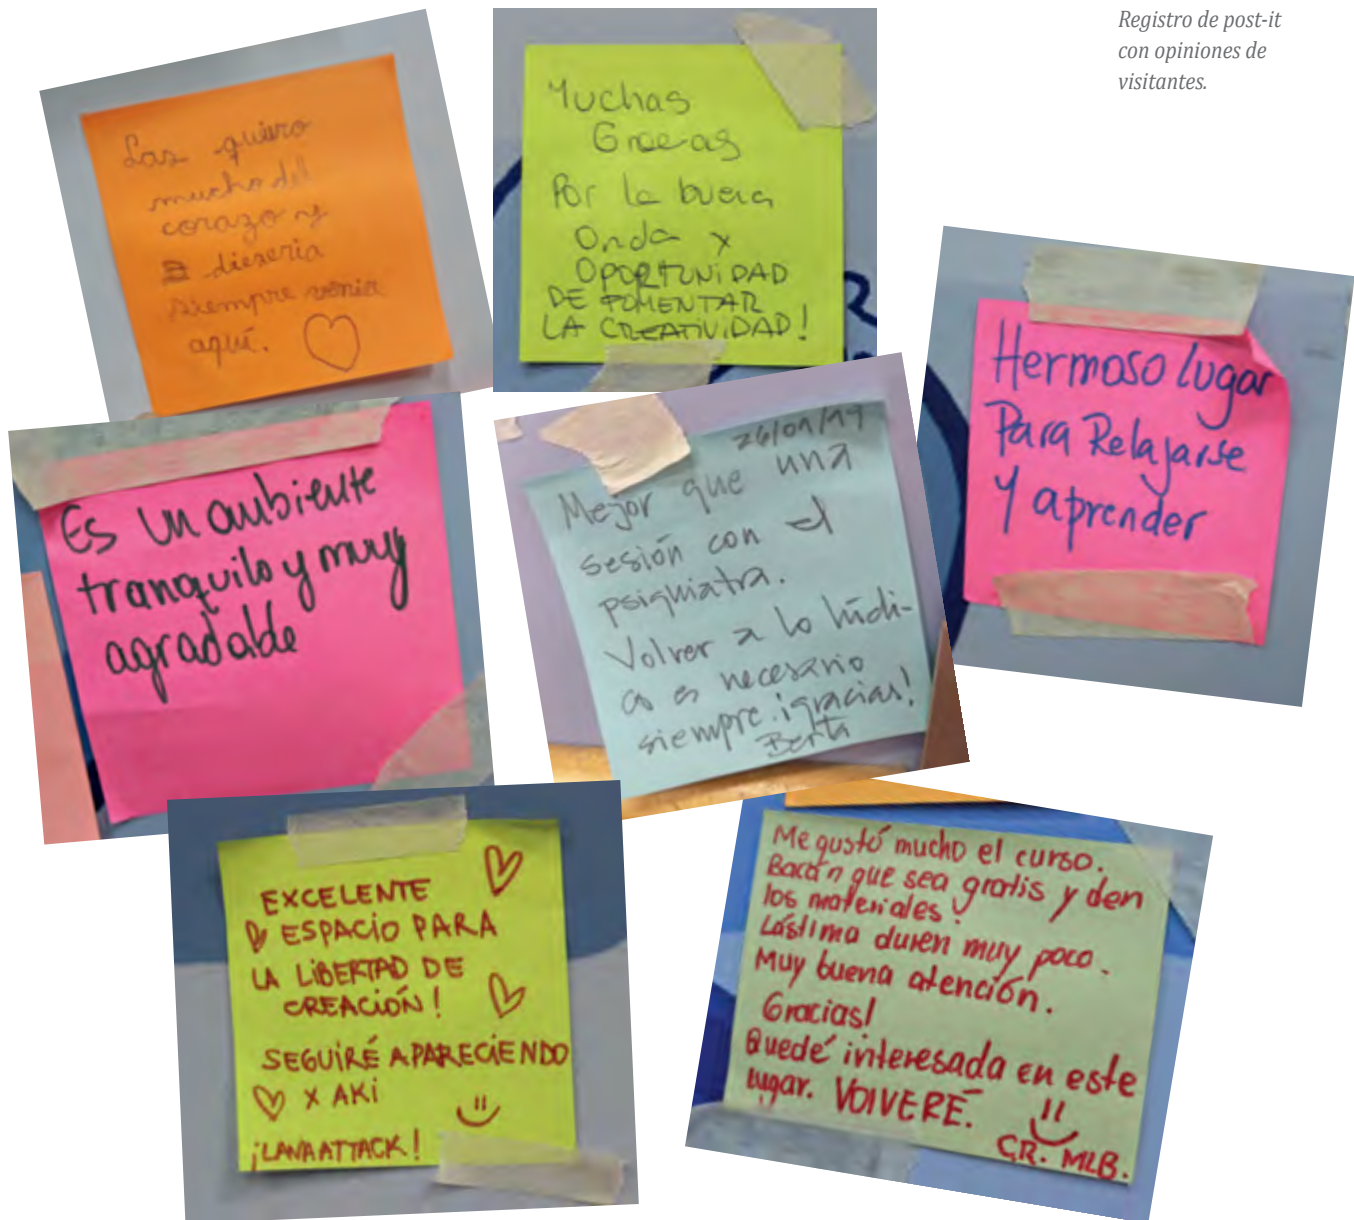 Registro de post-it
con opiniones de
visitantes.
Las quiero
mucho del
corazo y
dieseria
siempre venir
aquí.
Muchas
Gracias
Por la buena
Onda y
OPORTUNIDAD
DE FOMENTAR
LA CREATIVIDAD!
Hermoso lugar
Para Relajarse
Y aprender
Es un ambiente
tranquilo y muy
agradable
26/01/19
Mejor que una
sesión con el
psiquiatra.
Volver a lo lúdi-
co es necesario
siempre. ¡gracias!
Berta
EXCELENTE
ESPACIO PARA
LA LIBERTAD DE
CREACIÓN!
SEGUIRÉ APARECIENDO
X AKI
¡LANAATTACK!
Me gustó mucho el curso.
Bacán que sea gratis y den
los materiales.
Lástima duren muy poco.
Muy buena atención.
Gracias!
Quedé interesada en este
lugar. VOLVERÉ.
C.R. MLB.